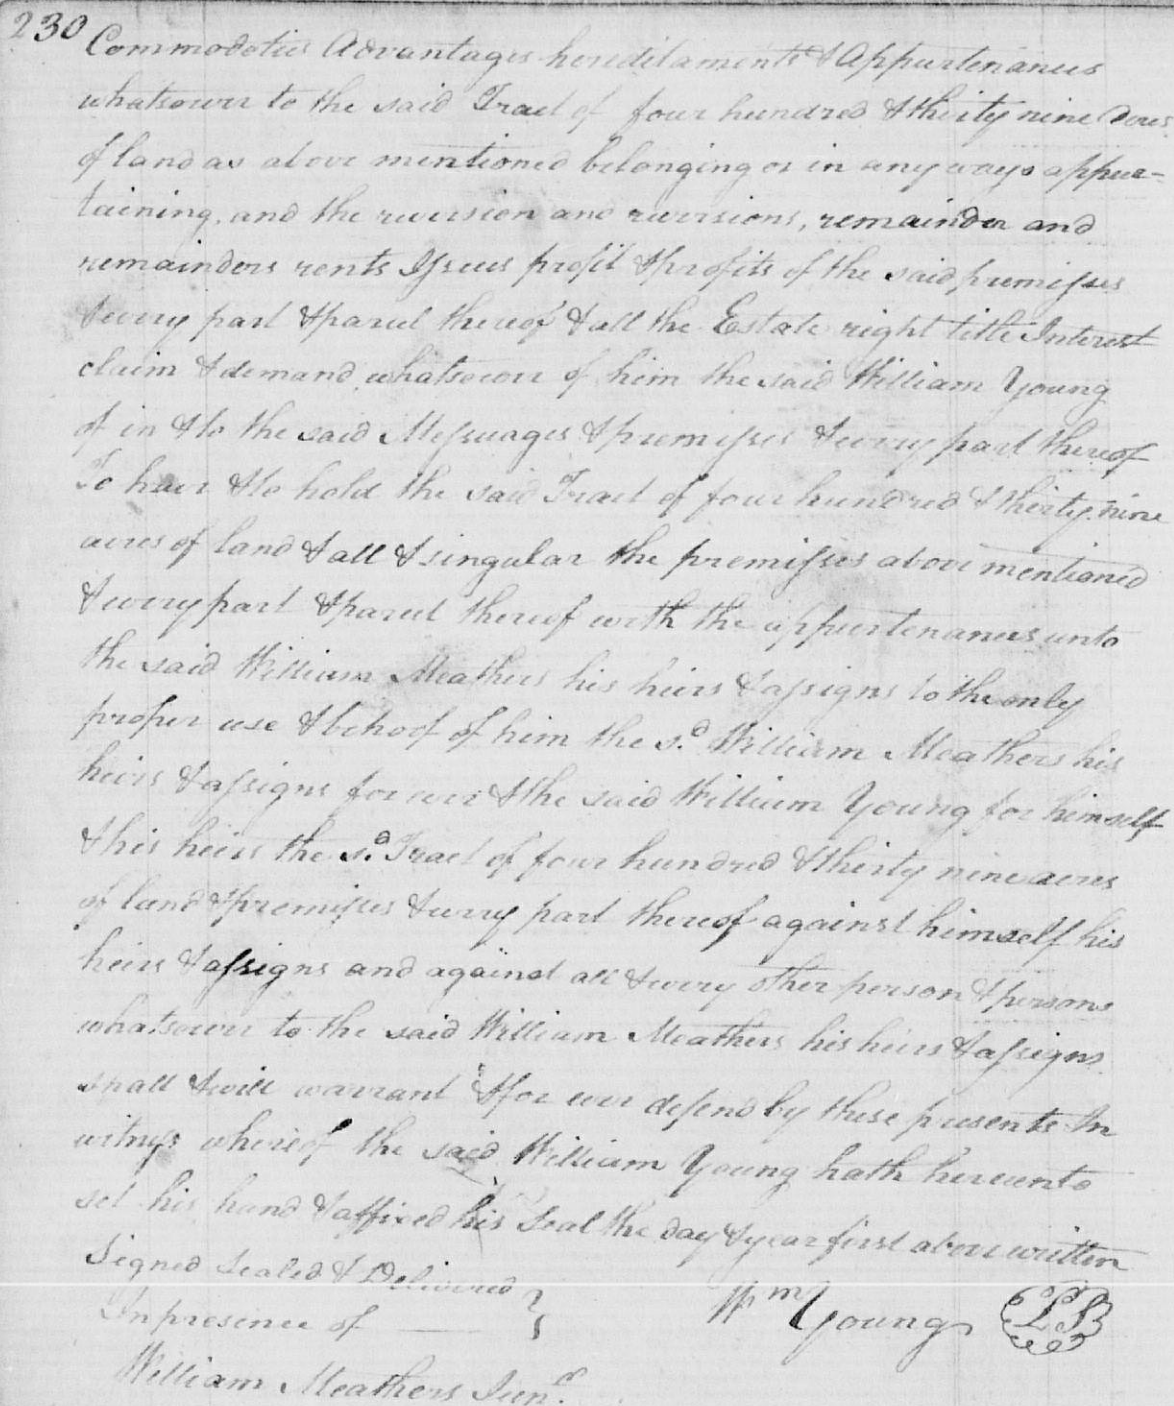 230
Commodoties Advantages hereditaments & Appurtenances
whatsoever to the said Tract of four hundred & thirty nine Acres
of land as above mentioned belonging or in any ways appur-
taining, and the reversion and reversions, remainder and
remainders rents Issues profit & profits of the said premisses
& every part & parcel thereof & all the Estate right title Interest
claim & demand whatsoever of him the said William Young
of in & to the said Messuages & premisses & every part thereof
To have & to hold the said Tract of four hundred & thirty nine
acres of land & all & singular the premisses above mentioned
& every part & parcel thereof with the appurtenances unto
the said William Meathers his heirs & assigns to the only
proper use & behoof of him the sd. William Meathers his
heirs & assigns for ever & the said William Young for himself
& his heirs the sd. Tract of four hundred & thirty nine acres
of land & premisses & every part thereof against himself his
heirs & assigns and against all & every other person & persons
whatsoever to the said William Meathers his heirs & assigns
shall & will warrant & for ever defend by these presents In
witness whereof the said William Young hath hereunto
set his hand & affixed his Seal the day & year first above written
Signed Sealed & Delivered
In presence of
Wm Young LS
William Meathers Junr.